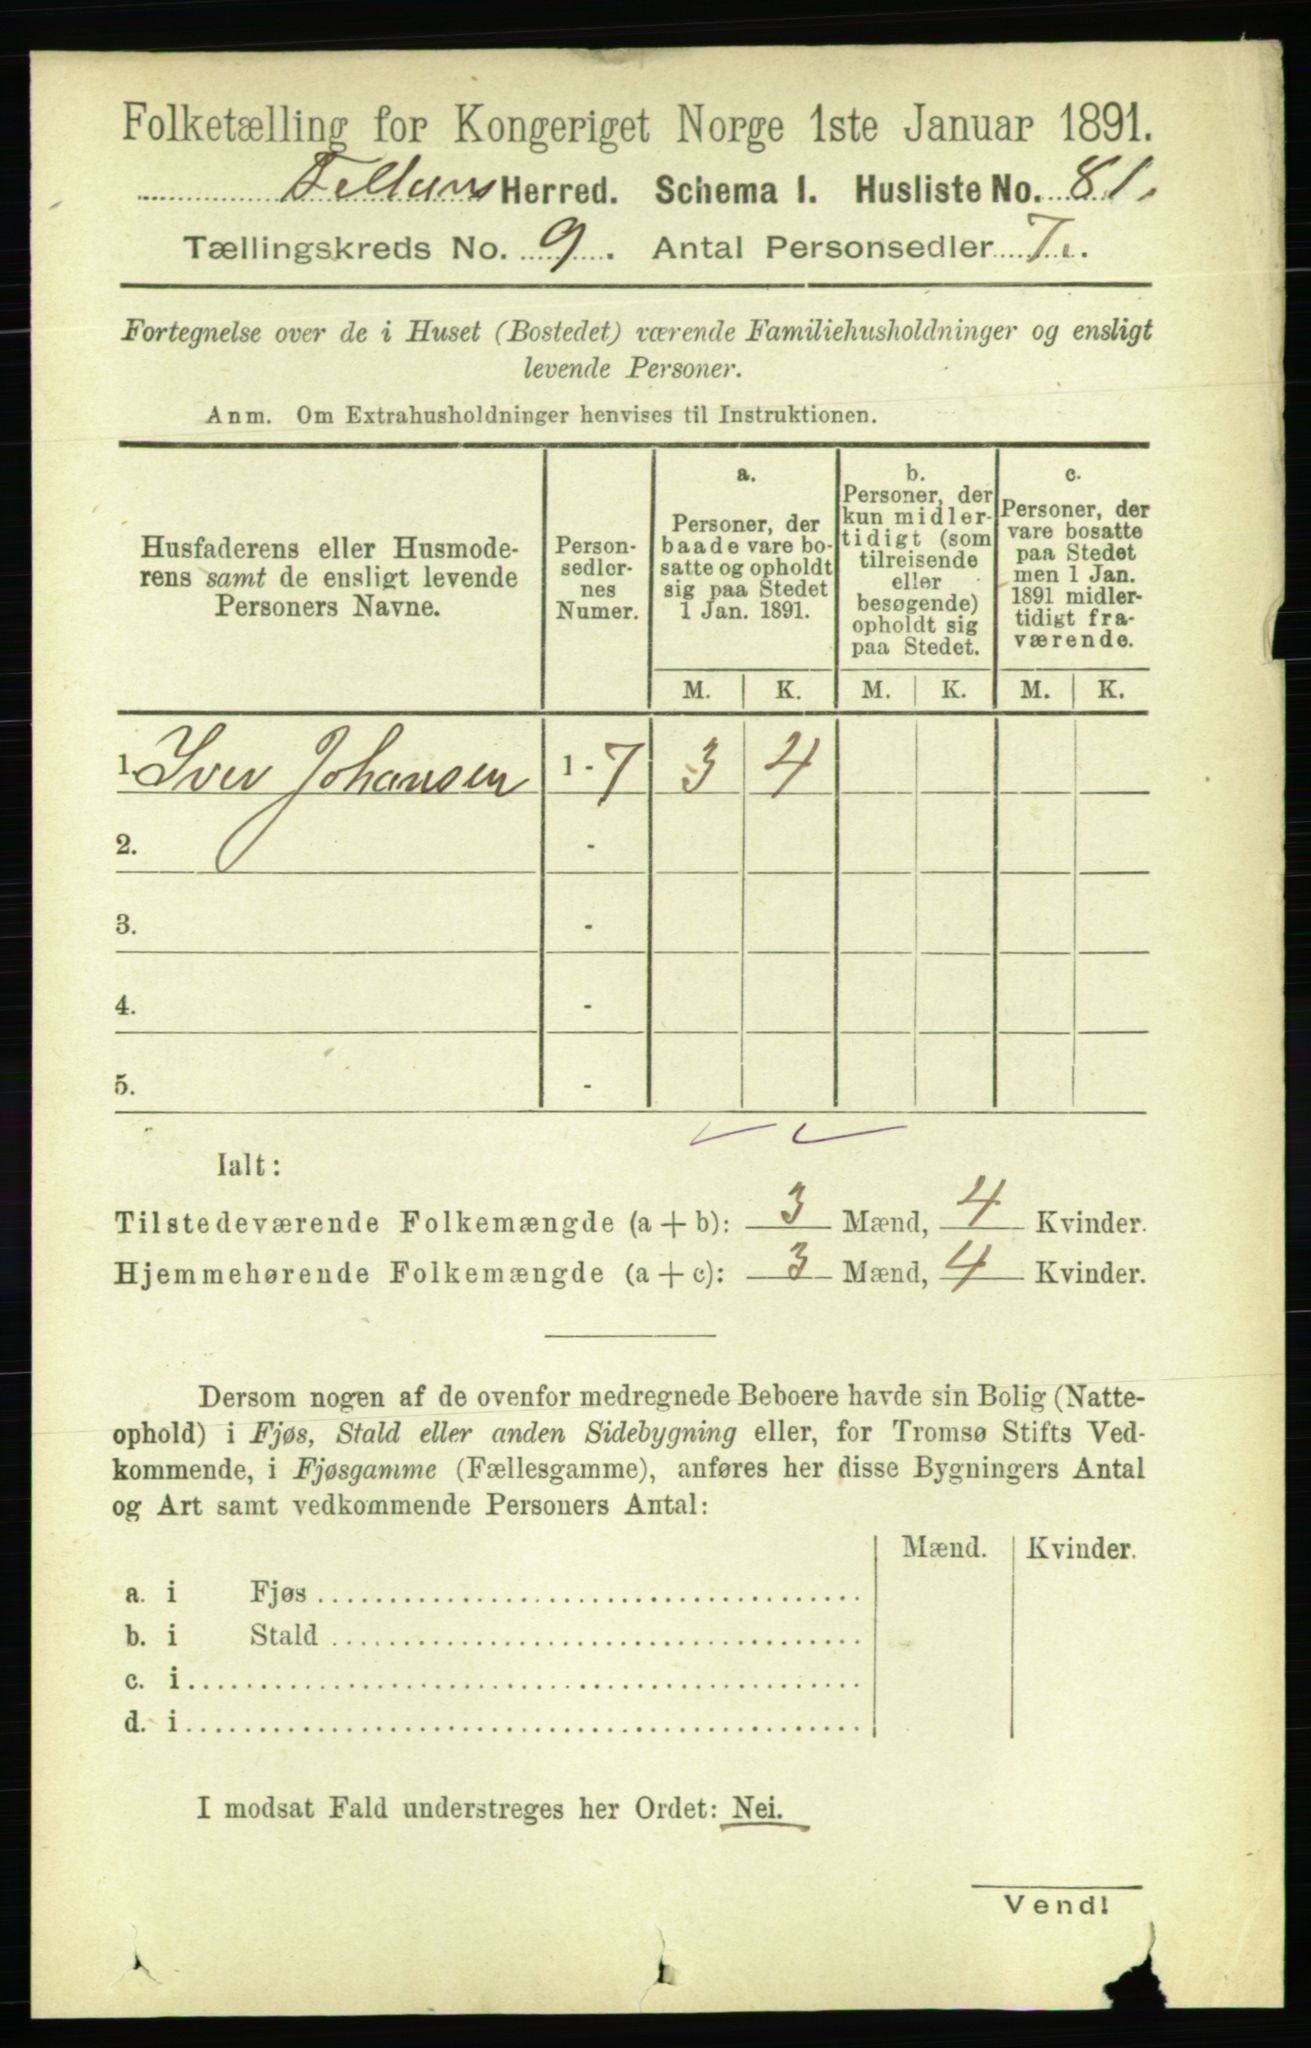 Folketælling for Kongeriget Norge 1ste Januar 1891.
Herred. Schema I. Husliste No. 81.
Tællingskreds No. 9. Antal Personsedler 7.
Fortegnelse over de i Huset (Bostedet) værende Familiehusholdninger og ensligt
levende Personer.
Anm. Om Extrahusholdninger henvises til Instruktionen.
Husfaderens eller Husmode-
rens samt de ensligt levende
Personers Navne.
Person-
sedler-
nes
Numer.
a.
Personer, der
baade vare bo-
satte og opholdt
sig paa Stedet
1 Jan. 1891.
b.
Personer, der
kun midler-
tidigt (som
tilreisende
eller
besøgende)
opholdt sig
paa Stedet.
c.
Personer, der
vare bosatte
paa Stedet
men 1 Jan.
1891 midler-
tidigt fra-
værende.
M. K. M. K. M. K.
1. Iver Johansen 1 - 7 3 4
2. -
3. -
4. -
5. -
Ialt:
Tilstedeværende Folkemængde (a + b): 3 Mænd, 4 Kvinder.
Hjemmehørende Folkemængde (a + c): 3 Mænd, 4 Kvinder.
Dersom nogen af de ovenfor medregnede Beboere havde sin Bolig (Natte-
ophold) i Fjøs, Stald eller anden Sidebygning eller, for Tromsø Stifts Ved-
kommende, i Fjøsgamme (Fællesgamme), anføres her disse Bygningers Antal
og Art samt vedkommende Personers Antal:
Mænd. Kvinder.
a. i Fjøs
b. i Stald
c. i
d. i
I modsat Fald understreges her Ordet: Nei.
Vend!